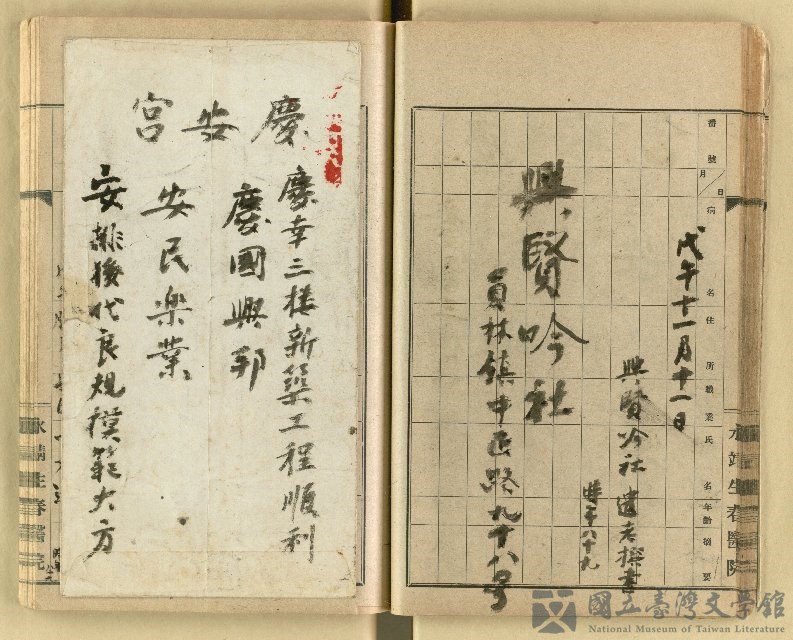 番號
月/日
病名
住所
職業
氏名
年齡
摘要
戊午十一月十一日
興賢吟社遺老撰書
興賢吟社
員林鎮中正路九十八号
永靖生春醫院
慶安宮
慶幸三樓新築工程順利
慶國興邦
安民楽業
安排後代良規模範大方
永靖生春醫院
國立臺灣文學館
National Museum of Taiwan Literature